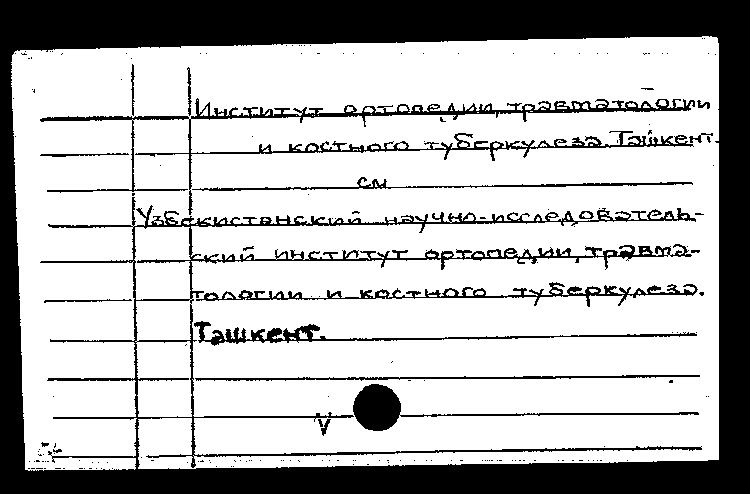 Институт ортопедии, травматологии
и костного туберкулеза. Ташкент.
см
Узбекистанский научно-исследователь-
ский институт ортопедии, травма-
тологии и костного туберкулеза.
Ташкент.
V